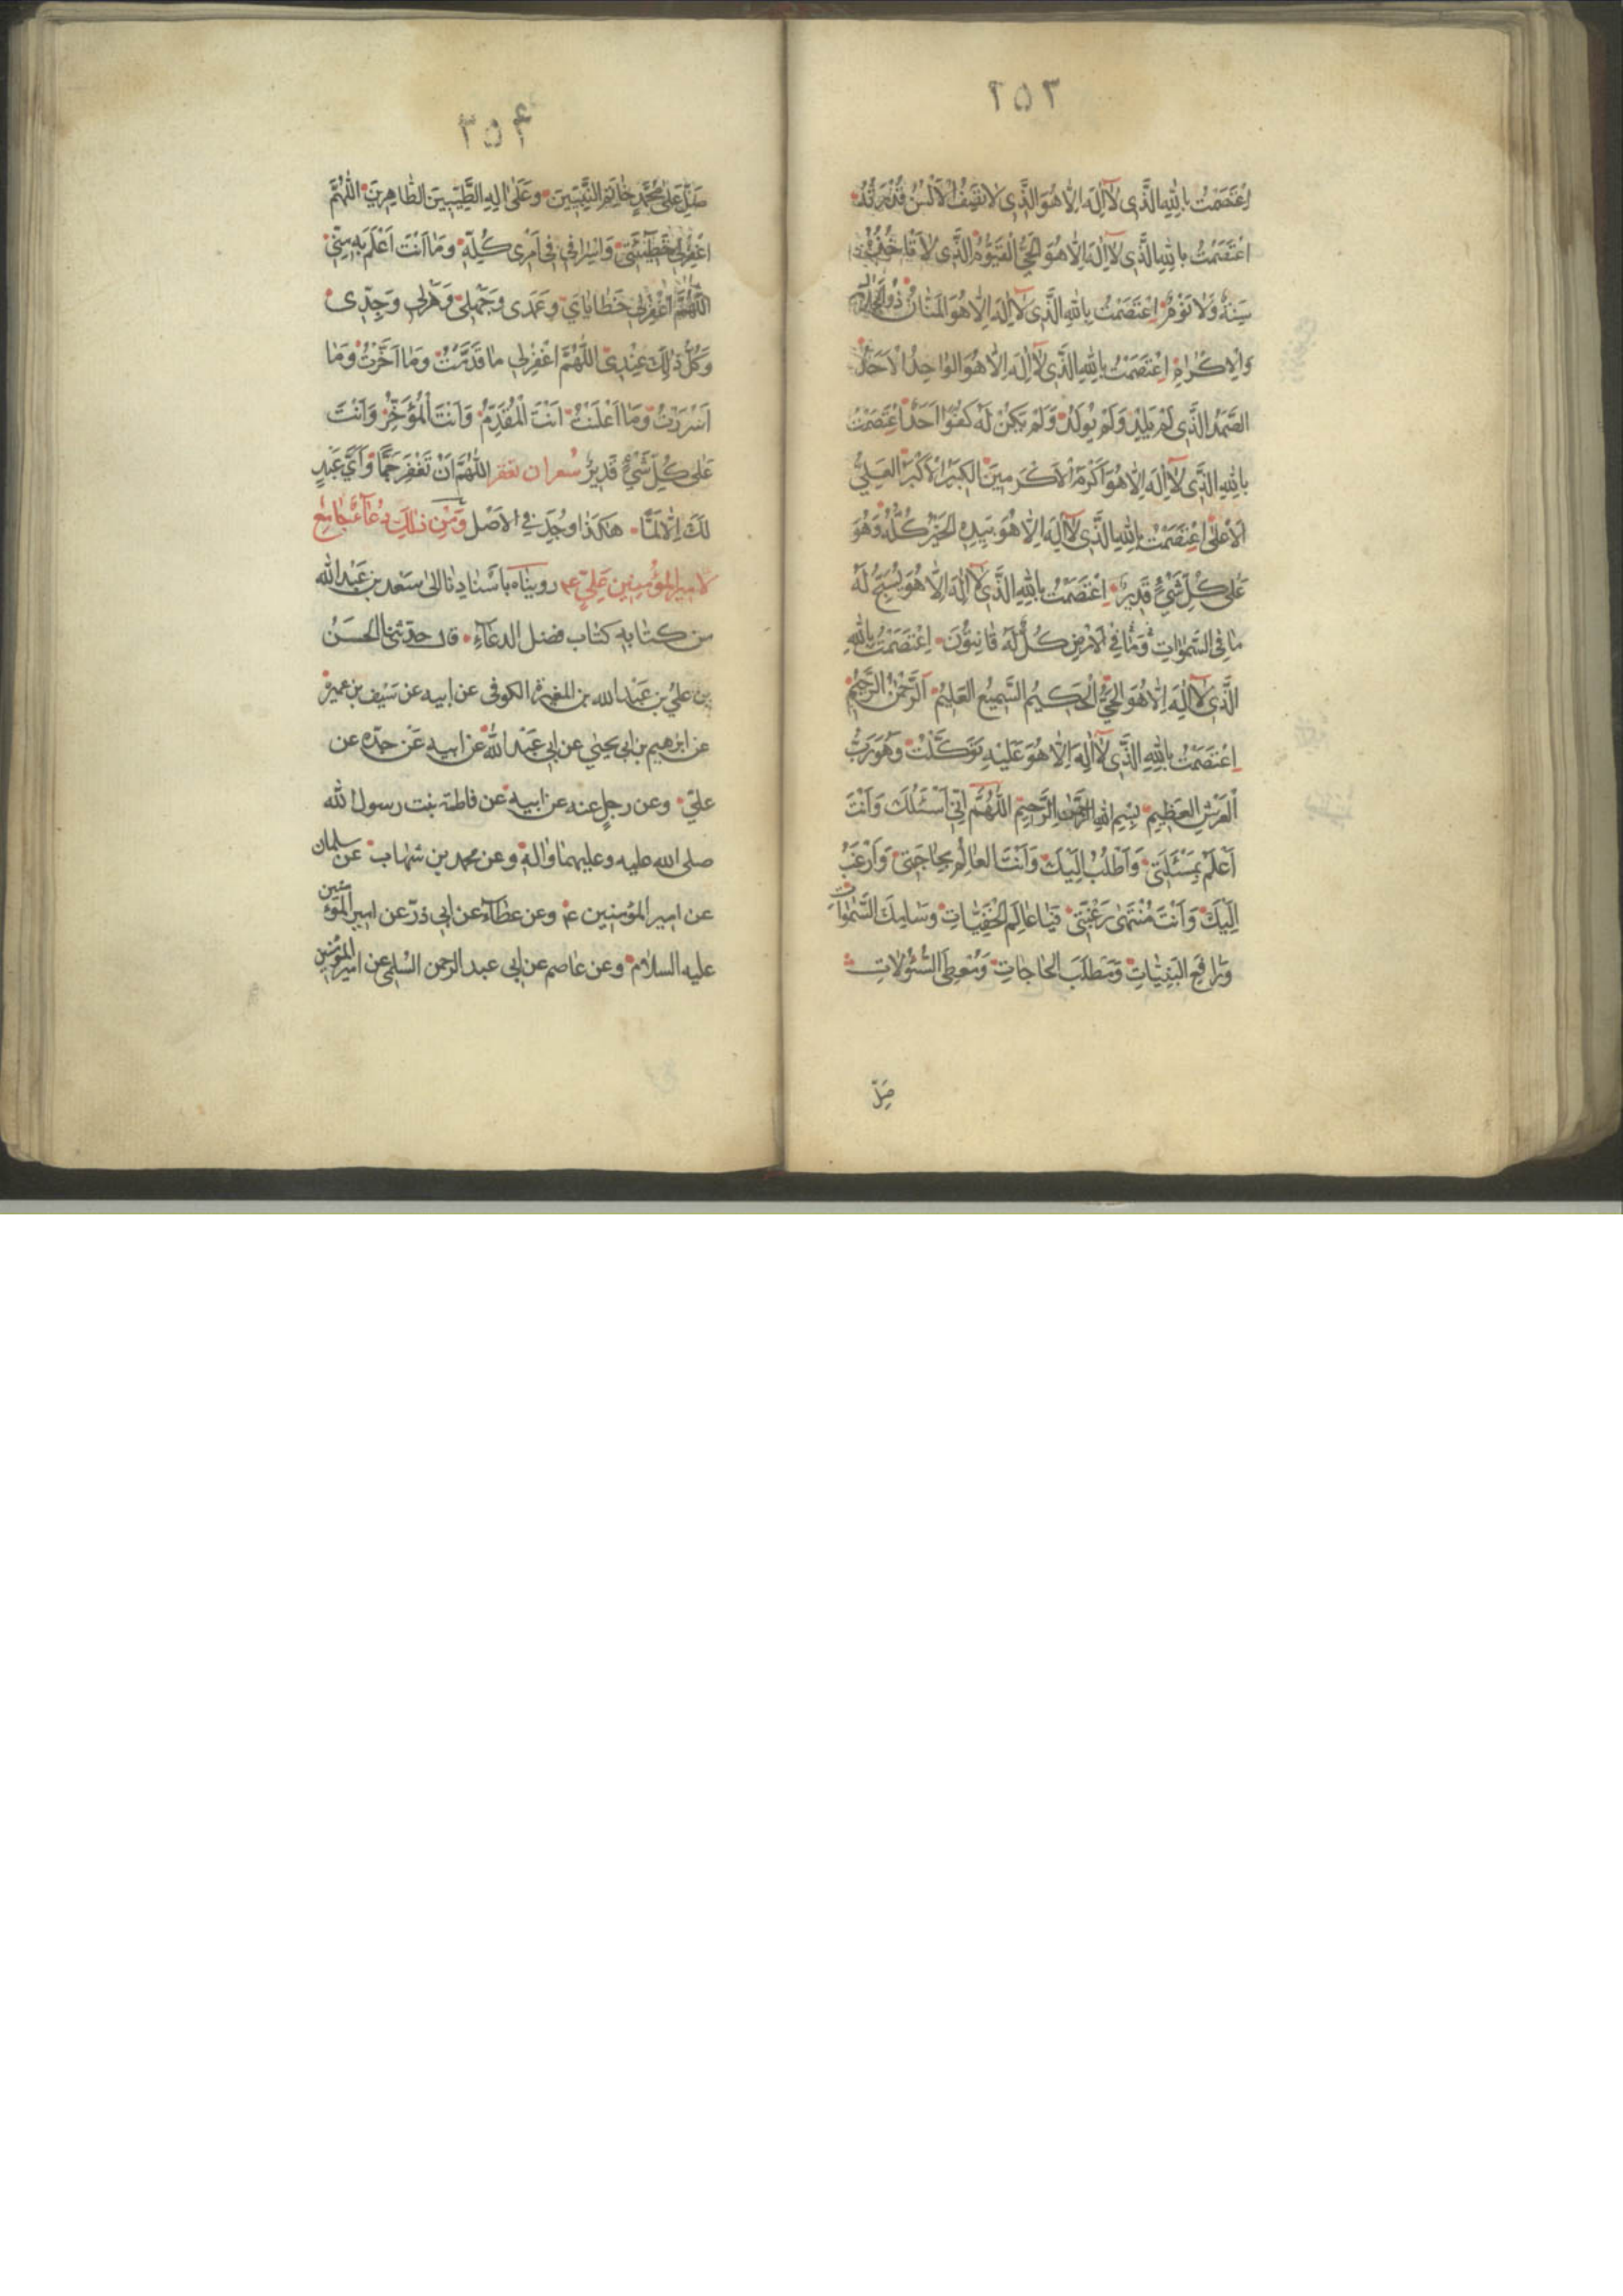 ٢٥٣
اِعْتَصَمْتُ بِاللهِ الَّذى لاۤ اِلٰهَ اِلّا هُوَ الَّذى لا تَصِفُ الْاَلْسُنُ قُدْرَتَهُ
اِعْتَصَمْتُ بِاللهِ الَّذى لاۤ اِلٰهَ اِلّا هُوَ الْحَىُّ الْقَيُّومُ الَّذى لا تَاْخُذُهُ
سِنَةٌ وَلا نَوْمٌ اِعْتَصَمْتُ بِاللهِ الَّذى لاۤ اِلٰهَ اِلّا هُوَ الْمَنّانُ ذُو الْجَلالِ
وَالْاِكْرامِ اِعْتَصَمْتُ بِاللهِ الَّذى لاۤ اِلٰهَ اِلّا هُوَ الْواحِدُ الْاَحَدُ
الصَّمَدُ الَّذى لَمْ يَلِدْ وَلَمْ يُولَدْ وَلَمْ يَكُنْ لَهُ كُفُوًا اَحَدٌ اِعْتَصَمْتُ
بِاللهِ الَّذى لاۤ اِلٰهَ اِلّا هُوَ اَكْرَمُ الْاَكْرَمينَ الْكَبيرُ الْاَكْبَرُ الْعَلِىُّ
الْاَعْلىٰ اِعْتَصَمْتُ بِاللهِ الَّذى لاۤ اِلٰهَ اِلّا هُوَ بِيَدِهِ الْخَيْرُ كُلُّهُ وَهُوَ
عَلىٰ كُلِّ شَىْءٍ قَديرٌ اِعْتَصَمْتُ بِاللهِ الَّذى لاۤ اِلٰهَ اِلّا هُوَ يُسَبِّحُ لَهُ
ما فِى السَّمٰواتِ وَما فِى الْاَرْضِ كُلٌّ لَهُ قانِتُونَ اِعْتَصَمْتُ بِاللهِ
الَّذى لاۤ اِلٰهَ اِلّا هُوَ الْحَىُّ الْحَكيمُ السَّميعُ الْعَليمُ الرَّحْمٰنُ الرَّحيمُ
اِعْتَصَمْتُ بِاللهِ الَّذى لاۤ اِلٰهَ اِلّا هُوَ عَلَيْهِ تَوَكَّلْتُ وَهُوَ رَبُّ
الْعَرْشِ الْعَظيمِ بِسْمِ اللهِ الرَّحْمٰنِ الرَّحيمِ اللّٰهُمَّ اِنّى اَسْئَلُكَ وَاَنْتَ
اَعْلَمُ بِمَسْئَلَتى وَاَطْلُبُ اِلَيْكَ وَاَنْتَ الْعالِمُ بِحاجَتى وَاَرْغَبُ
اِلَيْكَ وَاَنْتَ مُنْتَهىٰ رَغْبَتى فَيا عالِمَ الْخَفِيّاتِ وَسامِكَ السَّمٰواتِ
وَدافِعَ الْبَلِيّاتِ وَمَطْلَبَ الْحاجاتِ وَمُعْطِىَ السُّئُولاتِ
صَلِّ
٣٥٤
صَلِّ عَلىٰ مُحَمَّدٍ خاتَمِ النَّبِيّينَ وَعَلىٰ اٰلِهِ الطَّيِّبينَ الطّاهِرينَ اللّٰهُمَّ
اغْفِرْلى خَطيۤئَتى وَاِسْرافى فى اَمْرى كُلِّهِ وَما اَنْتَ اَعْلَمُ بِهِ مِنّى
اللّٰهُمَّ اغْفِرْلى خَطاياىَ وَعَمْدى وَجَهْلى وَهَزْلى وَجِدّى
وَكُلُّ ذٰلِكَ عِنْدى اللّٰهُمَّ اغْفِرْلى ما قَدَّمْتُ وَما اَخَّرْتُ وَما
اَسْرَرْتُ وَما اَعْلَنْتُ اَنْتَ الْمُقَدِّمُ وَاَنْتَ الْمُؤَخِّرُ وَاَنْتَ
عَلىٰ كُلِّ شَىْءٍ قَديرٌ شعر ان تغفر اللّٰهُمَّ اَنْ تَغْفِرَ جَمًّا وَاَىُّ عَبْدٍ
لَكَ اِلّا اَلَمّا هٰكَذا وُجِدَ فى الاَصْل وَمِنْ ذٰلِكَ دُعاۤءٌ جامِعٌ
لاميرالمؤمنين عَلِىّ عم رويناه باسنادنا الىٰ سَعْد بن عَبْدالله
من كتابه كتاب فضل الدعاۤء قال حدّثنى الحسَنُ
بن علىّ بن عَبْدالله بن المغيرة الكوفى عن ابيه عن سَيْف بن عميرة
عن ابرهيم بن ابى يحيىٰ عن ابى عَبْدالله عن ابيه عَن جدّه عن
علىّ وعن رجلٍ عنه عن ابيه عن فاطمة بنت رسول الله
صلى الله عليه وعليهما واله وعن محمد بن شهاب عن سلمان
عن امير المؤمنين عم وعن عطاۤء عن ابى ذرّ عن امير المؤمنين
عليه السلام وعن عاصم عن ابى عبد الرحمن السُلمى عن امير المؤمنين